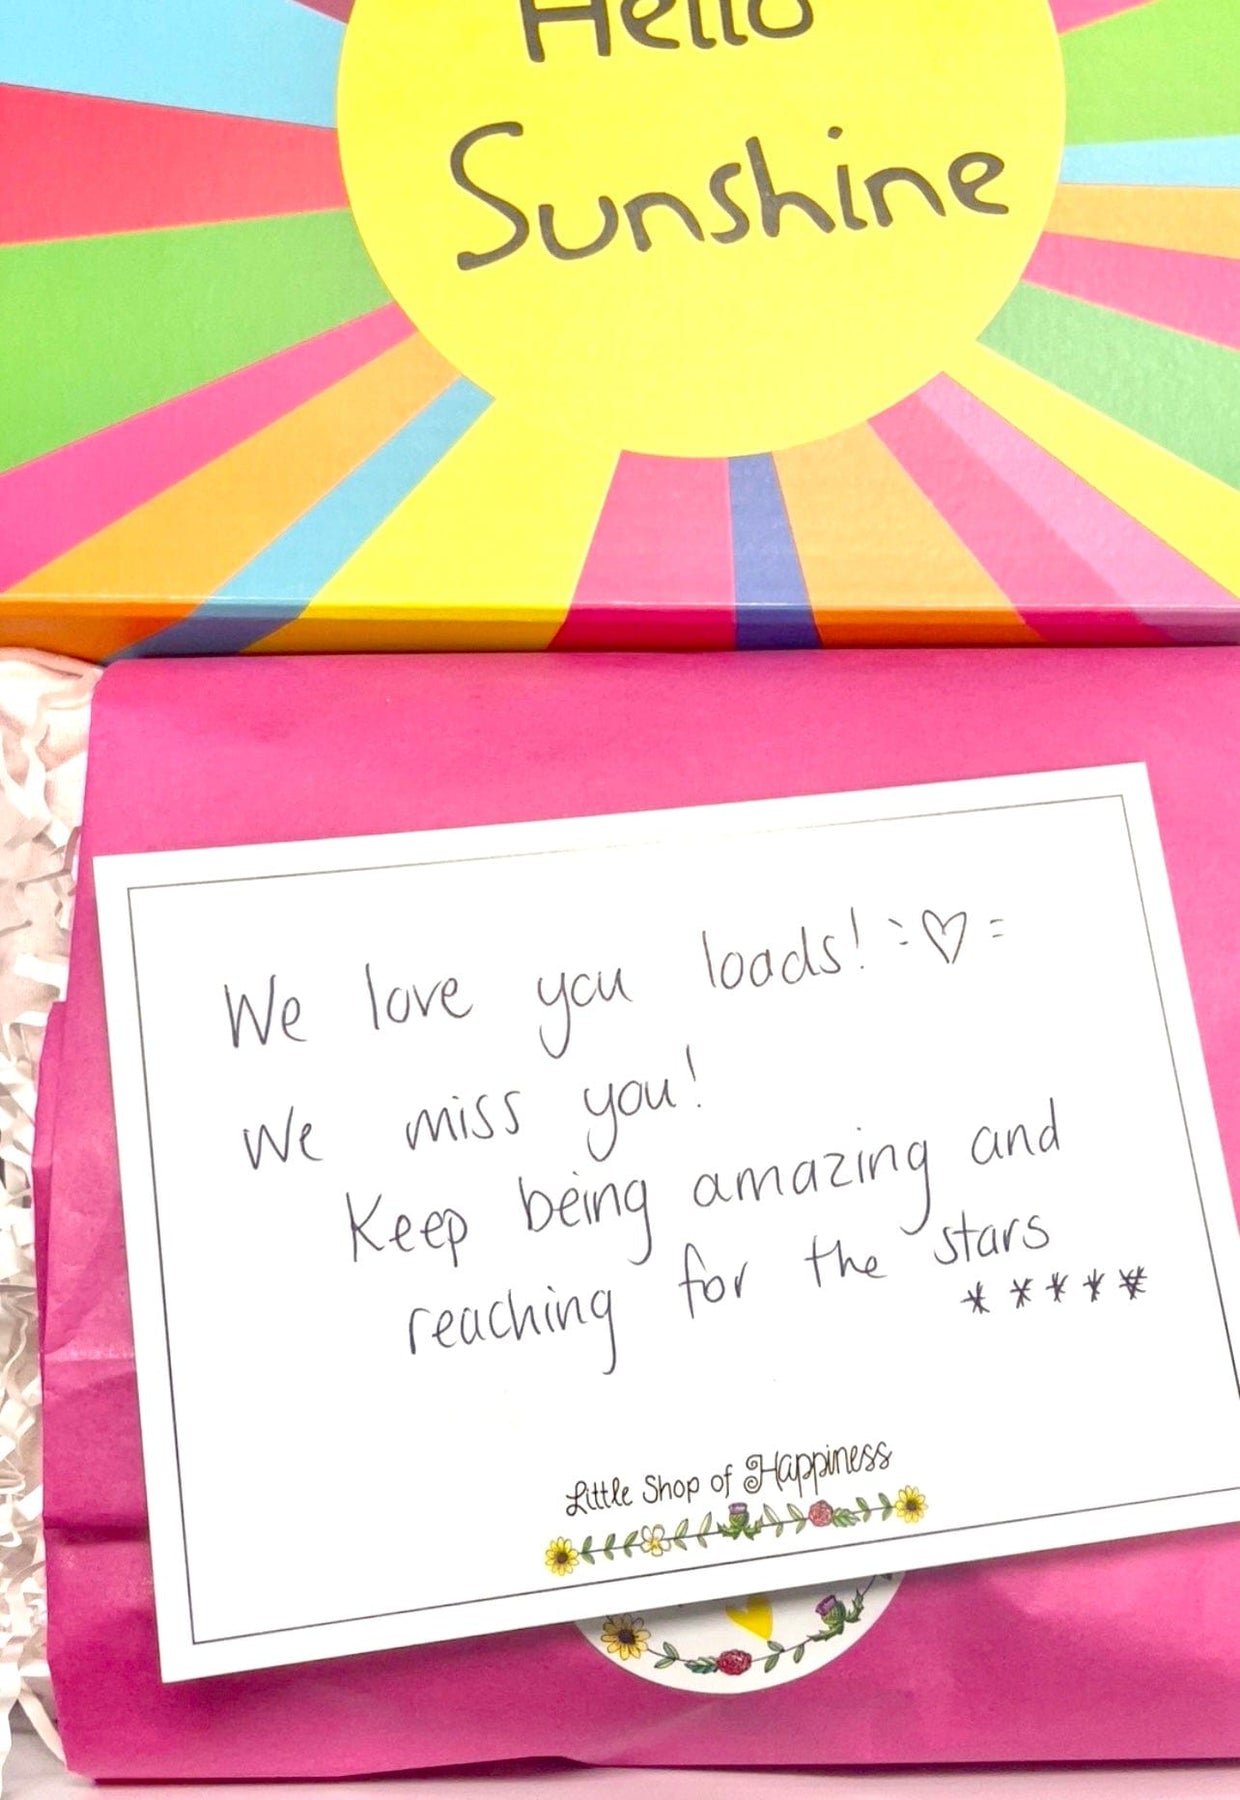 Hello
Sunshine
We love you loads!
We miss you!
Keep being amazing and
reaching for the stars
Little Shop of Happiness